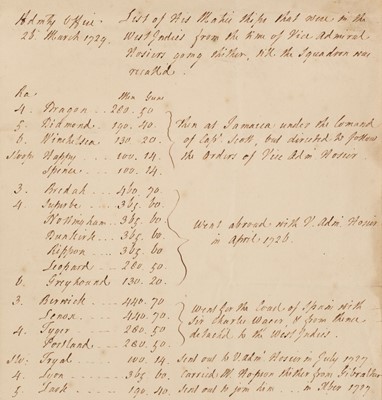 Admty Office
25 March 1729.
List of His Majts ships that were in the
West Indies from the time of Vice Admiral
Hosiers going thither, till the Squadron was
recalled.
Ra. Men Guns
4. Dragon 280. 50
5. Diamond 190. 40.
6. Winchelsea 130. 20.
Sloop Happy 100. 14
Spence 100. 14.
Then at Jamaica under the Comand
of Capt. Scott, but directed to follow
the Orders of Vice Adml Hosier.
3. Bredah 460. 70.
4. Superbe 365. 60.
Nottingham 365. 60
Dunkirk 365. 60.
Rippon 365. 60
Leopard 280. 50
6. Greyhound 130. 20
Went abroad with V. Adml Hosier
in April 1726.
3. Berwick 440. 70
Lenox 440. 70
4. Tyger 280. 50
Portland 280. 50
Went for the Coast of Spain with
Sir Charles Wager, & from thence
detach'd to the West Indies.
Slo. Tryal 100. 14 Sent out to V. Adml Hosier in July 1727
4. Lyon 365. 60 Carried Mr Hopson thither from Gibraltar
5. Lark 190. 40 Sent out to join him in Xber 1727